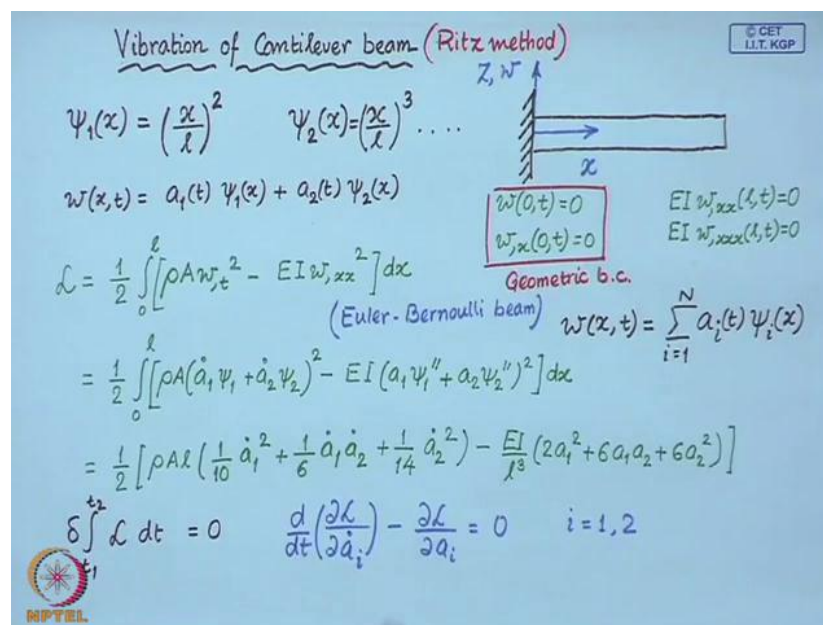 Vibration of Cantilever beam (Ritz method)
© CET
I.I.T. KGP
Z, w
ψ₁(x) = (x/l)²   ψ₂(x)=(x/l)³ ....
x
w(x,t) = a₁(t) ψ₁(x) + a₂(t) ψ₂(x)
w(0,t)=0
w,ₓ(0,t)=0
Geometric b.c.
EI w,ₓₓ(l,t)=0
EI w,ₓₓₓ(l,t)=0
ℒ = 1/2 ∫₀ˡ [ρA w,ₜ² − EI w,ₓₓ²] dx
(Euler-Bernoulli beam)
w(x,t) = ∑_{i=1}^{N} aᵢ(t) ψᵢ(x)
= 1/2 ∫₀ˡ [ρA(ȧ₁ψ₁ + ȧ₂ψ₂)² − EI(a₁ψ₁″ + a₂ψ₂″)²] dx
= 1/2 [ρAl(1/10 ȧ₁² + 1/6 ȧ₁ȧ₂ + 1/14 ȧ₂²) − EI/l³ (2a₁² + 6a₁a₂ + 6a₂²)]
δ∫_{t₁}^{t₂} ℒ dt = 0   d/dt(∂ℒ/∂ȧᵢ) − ∂ℒ/∂aᵢ = 0   i = 1, 2
NPTEL